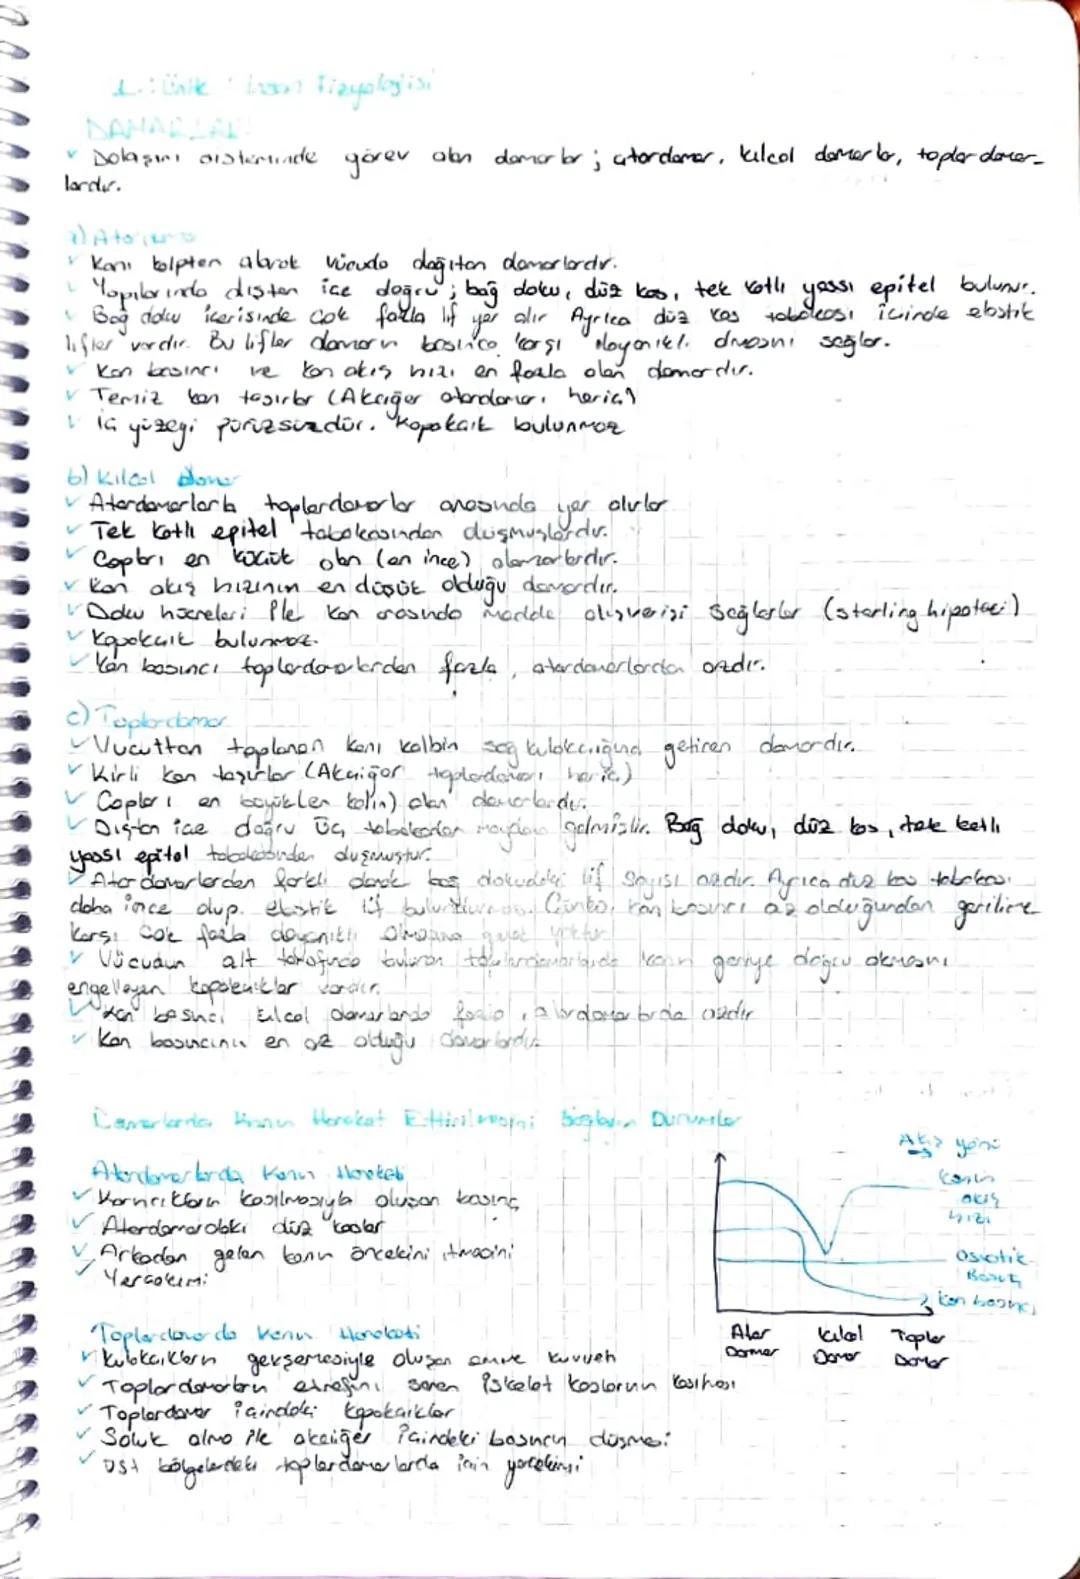 1. Ünite : İnsan Fizyolojisi
DAMARLAR
✓ Dolaşım sisteminde görev alan damarlar ; atardamar, kılcal damarlar, toplardamar-
lardır.
a) Atardamar
✓ Kanı kalpten alarak vücuda dağıtan damarlardır.
✓ Yapılarında dıştan içe doğru ; bağ doku, düz kas, tek katlı yassı epitel bulunur.
✓ Bağ doku içerisinde çok fazla lif yer alır Ayrıca düz kas tabakası içinde elastik
lifler vardır. Bu lifler damarın basınca karşı dayanıklı olmasını sağlar.
✓ Kan basıncı ve kan akış hızı en fazla olan damardır.
✓ Temiz kan taşırlar (Akciğer atardamarı hariç)
✓ İç yüzeyi pürüzsüzdür. Kapakçık bulunmaz
b) Kılcal Damar
✓ Atardamarlarla toplardamarlar arasında yer alırlar
✓ Tek katlı epitel tabakasından oluşmuşlardır.
✓ Çapları en küçük olan (en ince) damarlardır.
✓ Kan akış hızının en düşük olduğu damardır.
✓ Doku hücreleri ile kan arasında madde alışverişi sağlarlar (starling hipotezi)
✓ Kapakçık bulunmaz.
✓ Kan basıncı toplardamarlardan fazla, atardamarlardan azdır.
c) Toplardamar
✓ Vücuttan toplanan kanı kalbin sağ kulakçığına getiren damardır.
✓ Kirli kan taşırlar (Akciğer toplardamarı hariç)
✓ Çapları en büyük(en kalın) olan damarlardır.
✓ Dıştan içe doğru üç tabakadan meydana gelmiştir. Bağ doku, düz kas, tek katlı
yassı epitel tabakasından oluşmuştur.
✓ Atardamarlardan farklı olarak bağ dokudaki lif sayısı azdır. Ayrıca düz kas tabakası
daha ince olup. elastik lif bulundurmaz. Çünkü, kan basıncı az olduğundan gerilime
karşı çok fazla dayanıklı olmasına gerek yoktur.
✓ Vücudun alt tarafında bulunan toplardamarlarda kanın geriye doğru akmasını
engelleyen kapakçıklar vardır.
✓ Kan basıncı kılcal damarlarda fazla, atardamarlarda azdır
✓ Kan basıncının en az olduğu damarlardır.
Damarlarda Kanın Hareket Ettirilmesini Sağlayan Durumlar
Atardamarlarda Kanın Hareketi
✓ Karıncıkların kasılmasıyla oluşan basınç
✓ Atardamardaki düz kaslar
✓ Arkadan gelen kanın öncekini itmesini
✓ Yerçekimi
Akış yönü
Kanın
akış
hızı
Osmotik
Basınç
Kan basıncı
Atar Damar
Kılcal Damar
Toplar Damar
Toplardamarda Kanın Hareketi
✓ Kulakçıkların gevşemesiyle oluşan emme kuvveti
✓ Toplardamarların etrafını saran iskelet kaslarının kasılması
✓ Toplardamar içindeki kapakçıklar
✓ Soluk alma ile akciğer içindeki basıncın düşmesi
✓ Üst bölgelerdeki toplardamarlarda için yerçekimi